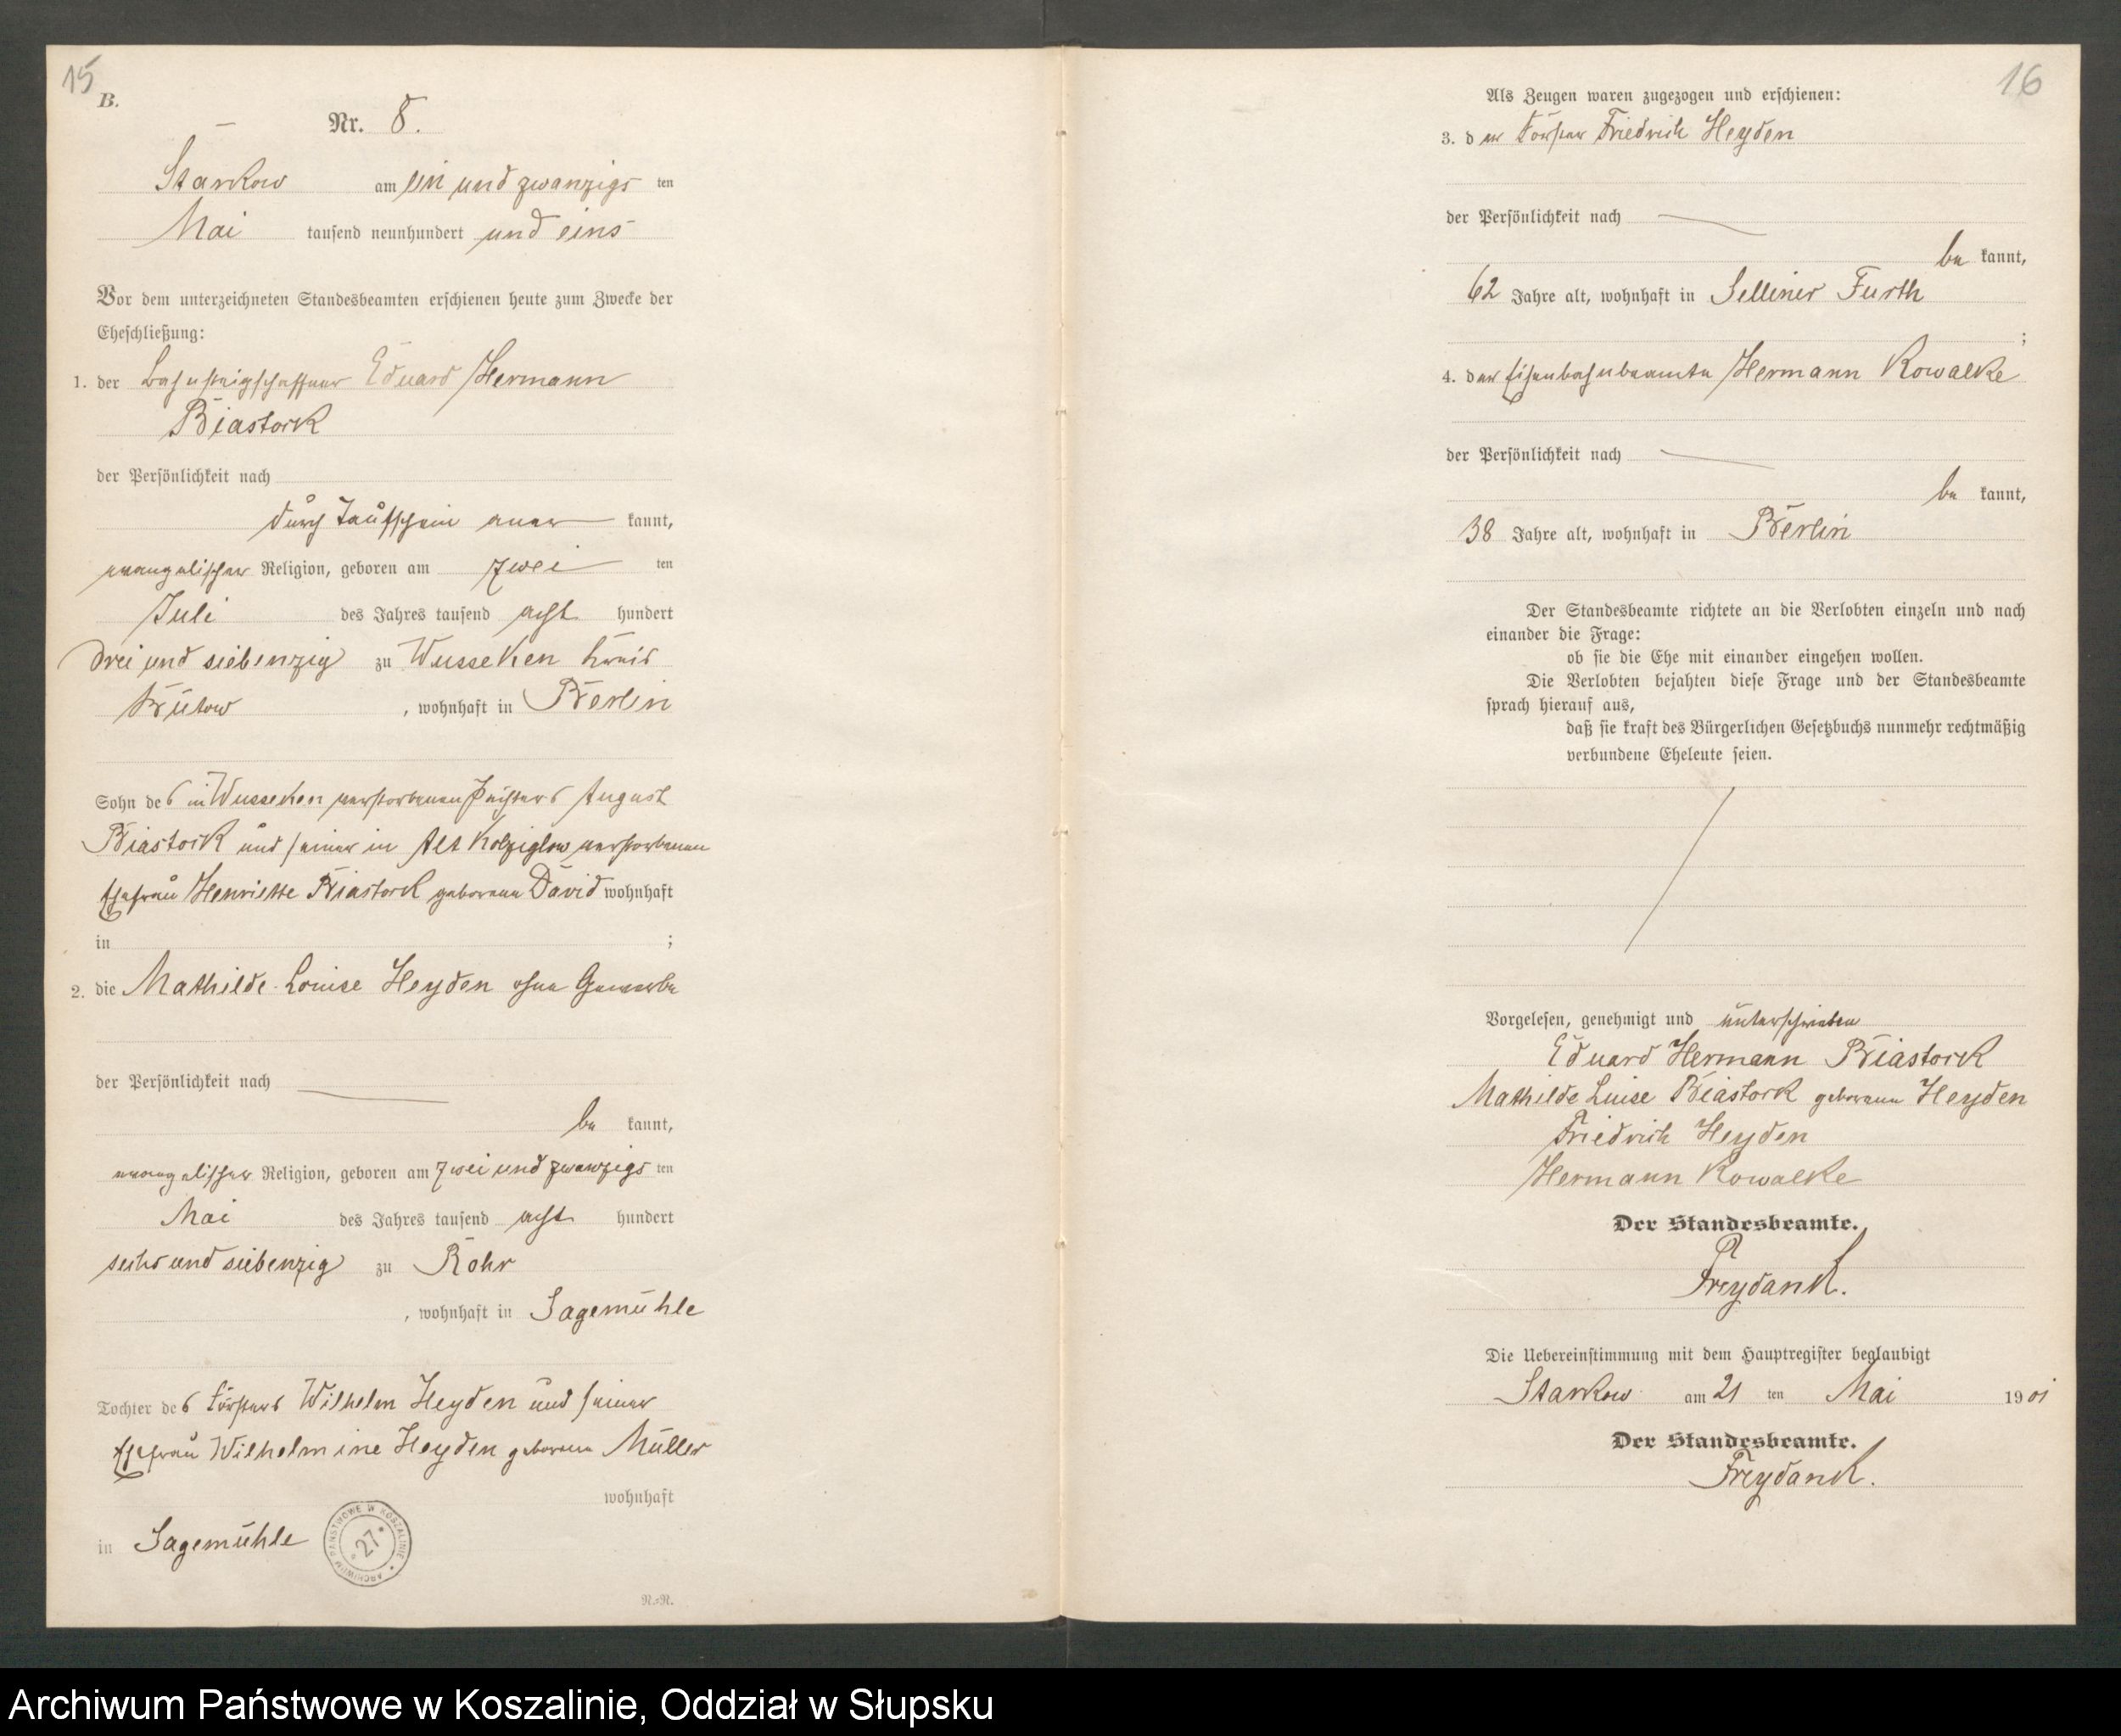 15
B.
Nr. 8.
Starkow am ein und zwanzigs ten
Mai tausend neunhundert und eins
Vor dem unterzeichneten Standesbeamten erschienen heute zum Zwecke der
Eheschließung:
1. der Bahnsteigschaffner Eduard Hermann
Biastock
der Persönlichkeit nach
durch Taufschein aner kannt,
evangelischer Religion, geboren am zwei ten
Juli des Jahres tausend acht hundert
drei und siebenzig zu Wusseken Kreis
Bütow, wohnhaft in Berlin
Sohn des in Wusseken verstorbenen August
Biastock und seiner in Alt Kolziglow verstorbenen
Ehefrau Henriette Biastock geborene David wohnhaft
in ;
2. die Mathilde Louise Heyden ohne Gewerbe
der Persönlichkeit nach
be kannt,
evangelischer Religion, geboren am zwei und zwanzigs ten
Mai des Jahres tausend acht hundert
sechs und siebenzig zu Rohr
, wohnhaft in Sagemühle
Tochter des Försters Wilhelm Heyden und seiner
Ehefrau Wilhelmine Heyden geborene Müller
wohnhaft
in Sagemühle
ARCHIWUM PAŃSTWOWE W KOSZALINIE * 27 *
N.=N.
16
Als Zeugen waren zugezogen und erschienen:
3. der Förster Friedrich Heyden
der Persönlichkeit nach
be kannt,
62 Jahre alt, wohnhaft in Selliner Furth
;
4. der Eisenbahnbeamte Hermann Kowalke
der Persönlichkeit nach
be kannt,
38 Jahre alt, wohnhaft in Berlin
Der Standesbeamte richtete an die Verlobten einzeln und nach
einander die Frage:
ob sie die Ehe mit einander eingehen wollen.
Die Verlobten bejahten diese Frage und der Standesbeamte
sprach hierauf aus,
daß sie kraft des Bürgerlichen Gesetzbuchs nunmehr rechtmäßig
verbundene Eheleute seien.
Vorgelesen, genehmigt und unterschrieben
Eduard Hermann Biastock
Mathilde Luise Biastock geborene Heyden
Friedrich Heyden
Hermann Kowalke
Der Standesbeamte.
Freydank.
Die Uebereinstimmung mit dem Hauptregister beglaubigt
Starkow am 21 ten Mai 1901
Der Standesbeamte.
Freydank.
Archiwum Państwowe w Koszalinie, Oddział w Słupsku